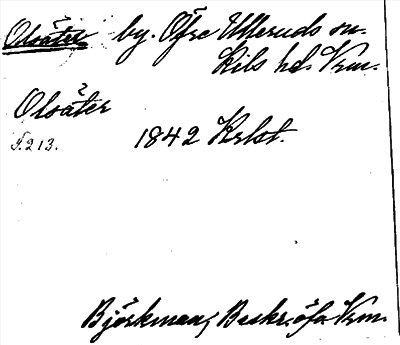 Olsäter by. Öfre Ulleruds sn.
Kils hd. Vrm.
Olsäter
S. 213. 1842 Krlst.
Björkman, Beskr. öfv. Vrm.